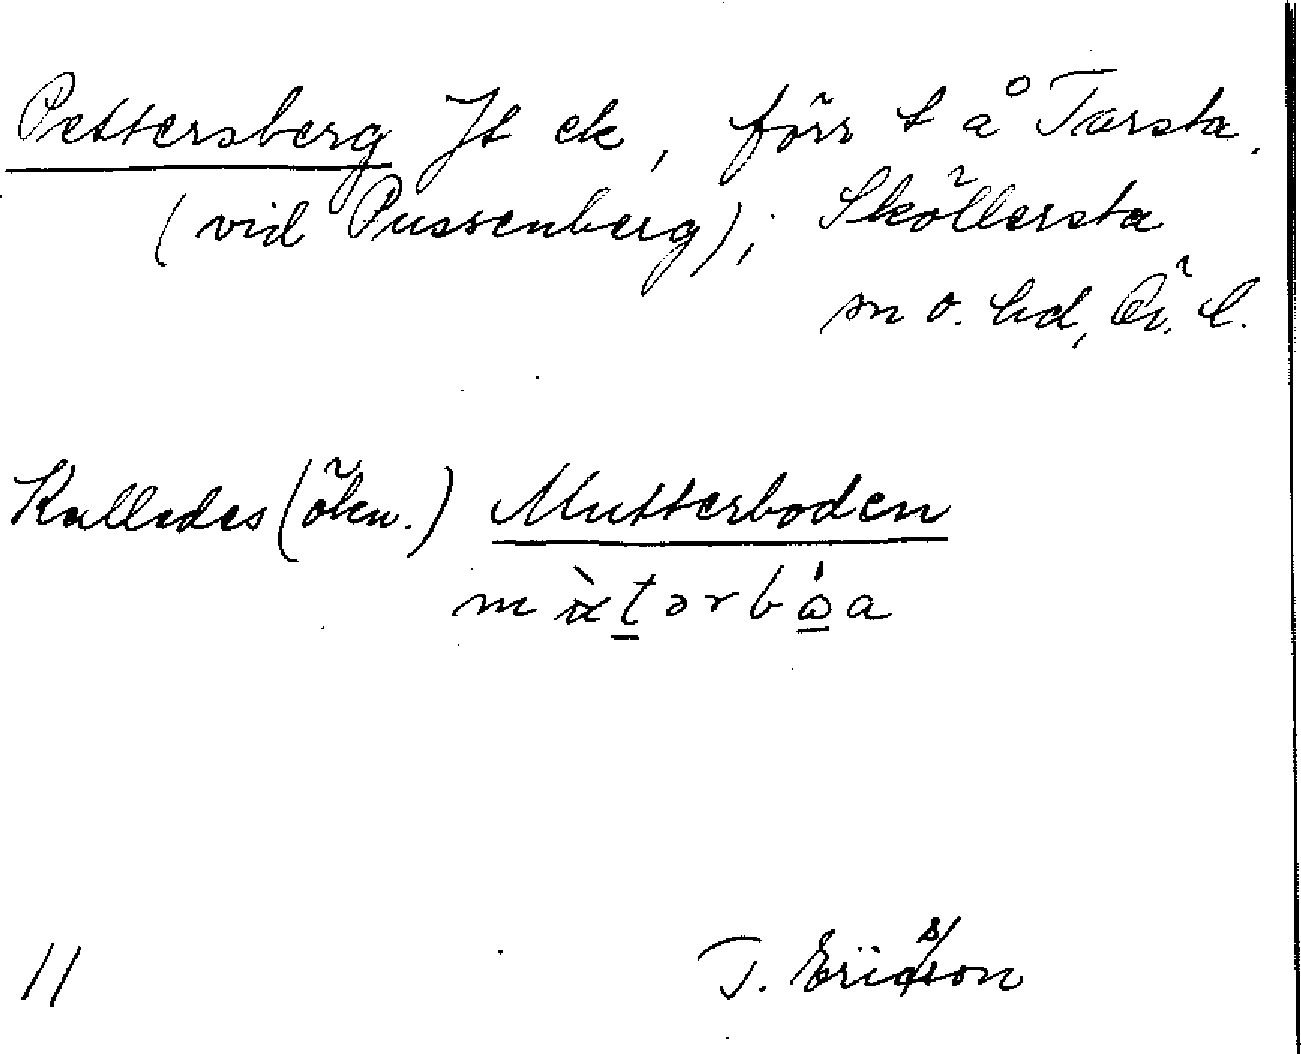 Pettersberg Jt ek, förr t å Tarsta.
(vid Pussenberg); Sköllersta
sn o. hd, Ör. l.
Kallades (ökn.) Mutterboden
T. Ericsson